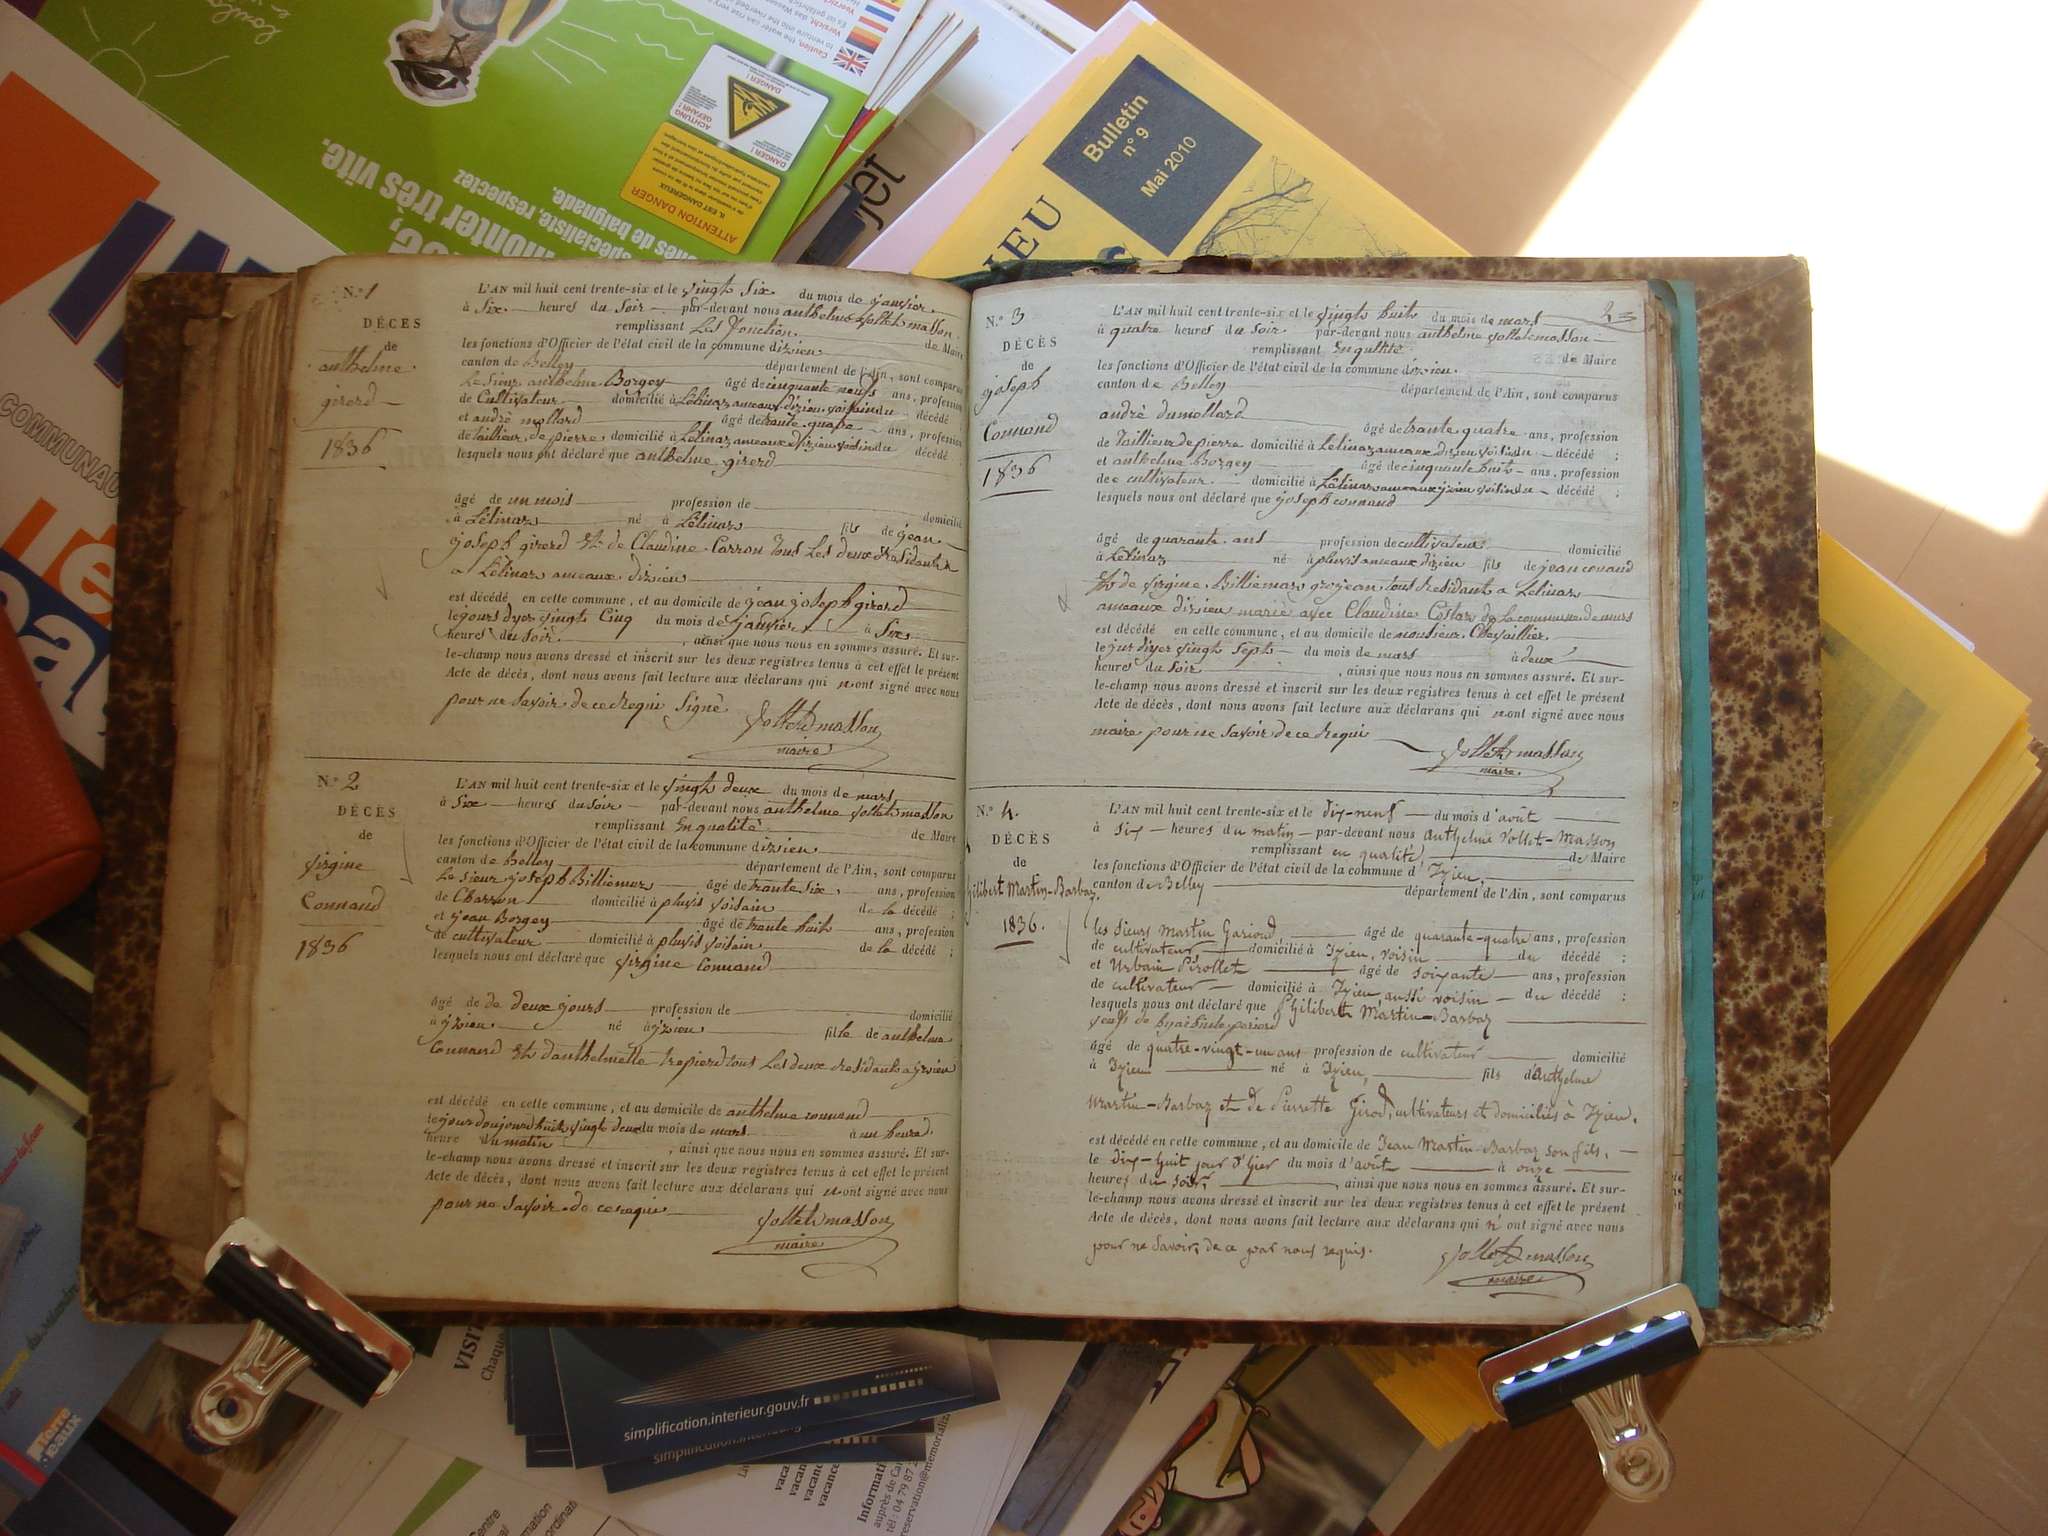 Bulletin
n° 9
Mai 2010
IEU
jet
ACHTUNG
GEFAHR !
DANGER !
ATTENTION DANGER
monter très vite.
spécialiste, respectez
de baignade.
COMMUNAU
N.° 1
DÉCES
de
anthelme
gired
1836
L'AN mil huit cent trente-six et le vingt Six du mois de janvier
à Six heures du Soir par-devant nous anthelme vollet masson
remplissant Les fonction de Maire
les fonctions d'Officier de l'état civil de la commune dizieu
canton de Belley département de l'Ain, sont comparus
Le Sieur anthelme Borgey âgé de cinquante neuf ans, profession
de Cultivateur domicilié à Lélinaz ameaux dizieu voisin du décédé ;
et andré mollard âgé de trante quatre ans, profession
de taillieur de pierre domicilié à Lélinaz ameaux dizieu voisin du décédé ;
lesquels nous ont déclaré que anthelme girerd
âgé de un mois profession de domicilié
à Lélinaz né à Lélinaz fils de jean
joseph girerd Et de Claudine Carron tous Les deux Résidants
a Lélinaz ameaux dizieu
est décédé en cette commune, et au domicile de jean joseph girerd
le jours dyer vingt Cinq du mois de janvier à Six
heures du soir , ainsi que nous nous en sommes assuré. Et sur-
le-champ nous avons dressé et inscrit sur les deux registres tenus à cet effet le présent
Acte de décès, dont nous avons fait lecture aux déclarans qui n ont signé avec nous
pour ne Savoir de ce Requi Signé
Vollet masson
maire
N.° 2
DÉCÈS
de
virgine
Connand
1836
L'AN mil huit cent trente-six et le vingt deux du mois de mars
à Six heures du soir par-devant nous anthelme vollet masson
remplissant En qualité de Maire
les fonctions d'Officier de l'état civil de la commune dizieu
canton de Belley département de l'Ain, sont comparus
Le sieur joseph Billiemaz âgé de trante six ans, profession
de Charron domicilié à pluvis voisain de la décédé ;
et jean Borgey âgé de trante huit ans, profession
de cultivateur domicilié à pluvis voisain de la décédé ;
lesquels nous ont déclaré que virgine Connand
âgé de de deux jours profession de domicilié
à yzieu né à yzieu fille de anthelme
Connand Et d'anthelmette trepierd tous Les deux Residants a yzieu
est décédé en cette commune, et au domicile de anthelme connand
le jour doujourdhuit vingt deux du mois de mars à un heure
heure du matin , ainsi que nous nous en sommes assuré. Et sur-
le-champ nous avons dressé et inscrit sur les deux registres tenus à cet effet le présent
Acte de décès, dont nous avons fait lecture aux déclarans qui n ont signé avec nous
pour ne Savoir de ce requi
Vollet masson
maire
N.° 3
DÉCÈS
de
joseph
Connand
1836
L'AN mil huit cent trente-six et le vingt huit du mois de mars
à quatre heures du soir par-devant nous anthelme vollet masson
remplissant En qualité de Maire
les fonctions d'Officier de l'état civil de la commune dizieu
canton de Belley département de l'Ain, sont comparus
andré dumollard âgé de trante quatre ans, profession
de Taillieur de pierre domicilié à Lélinaz ameaux dizieu voisin du décédé ;
et anthelme Borgey âgé de cinquante huit ans, profession
de cultivateur domicilié à Lélinaz ameaux yzieu voisin du décédé ;
lesquels nous ont déclaré que joseph connand
âgé de quarante ans profession de cultivateur domicilié
à Lélinaz né à pluvis ameaux dizieu fils de jean conand
Et de virgine Billiemaz grosjean tous Residant a Lélinaz
ameaux dizieu marié avec Claudine Costaz de La commune de murs
est décédé en cette commune, et au domicile de monsieur Chevaillier
le jur dyer vingt sept du mois de mars à deux
heures du soir , ainsi que nous nous en sommes assuré. Et sur-
le-champ nous avons dressé et inscrit sur les deux registres tenus à cet effet le présent
Acte de décès, dont nous avons fait lecture aux déclarans qui n ont signé avec nous
maire pour ne Savoir de ce Requi
Vollet masson
maire
N.° 4.
DÉCÈS
de
Philibert Martin-Barbaz.
1836.
L'AN mil huit cent trente-six et le dix-neuf du mois d'août
à six heures du matin par-devant nous Anthelme Vollet-Masson
remplissant en qualité, de Maire
les fonctions d'Officier de l'état civil de la commune d'Izieu,
canton de Belley département de l'Ain, sont comparus
les sieurs Martin Garioud âgé de quarante-quatre ans, profession
de cultivateur domicilié à Izieu, voisin du décédé ;
et Urbain Pirollet âgé de soixante ans, profession
de cultivateur domicilié à Izieu, aussi voisin du décédé ;
lesquels nous ont déclaré que Philibert Martin-Barbaz
âgé de quatre-vingt-un ans profession de cultivateur domicilié
à Izieu né à Izieu, fils d'Anthelme
Martin-Barbaz et de Pierrette Girod, cultivateurs et domiciliés à Izieu.
est décédé en cette commune, et au domicile de Jean Martin-Barbaz son fils,
le dix-huit jour d'hier du mois d'août à onze
heures du soir, , ainsi que nous nous en sommes assuré. Et sur-
le-champ nous avons dressé et inscrit sur les deux registres tenus à cet effet le présent
Acte de décès, dont nous avons fait lecture aux déclarans qui n' ont signé avec nous
pour ne savoir, de ce par nous requis.
Vollet masson
maire
simplification.interieur.gouv.fr
VISIT
Chaque
vacances
Informati
auprès de
tél : 04 79 87
reservation@memorializ
Terre
d'eaux